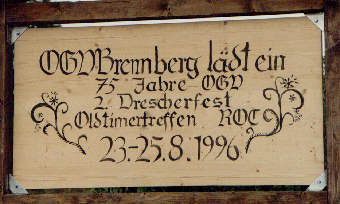 OGV Brennberg lädt ein
75 Jahre OGV
2. Drescherfest
Oldtimertreffen ROC
23.-25.8.1996